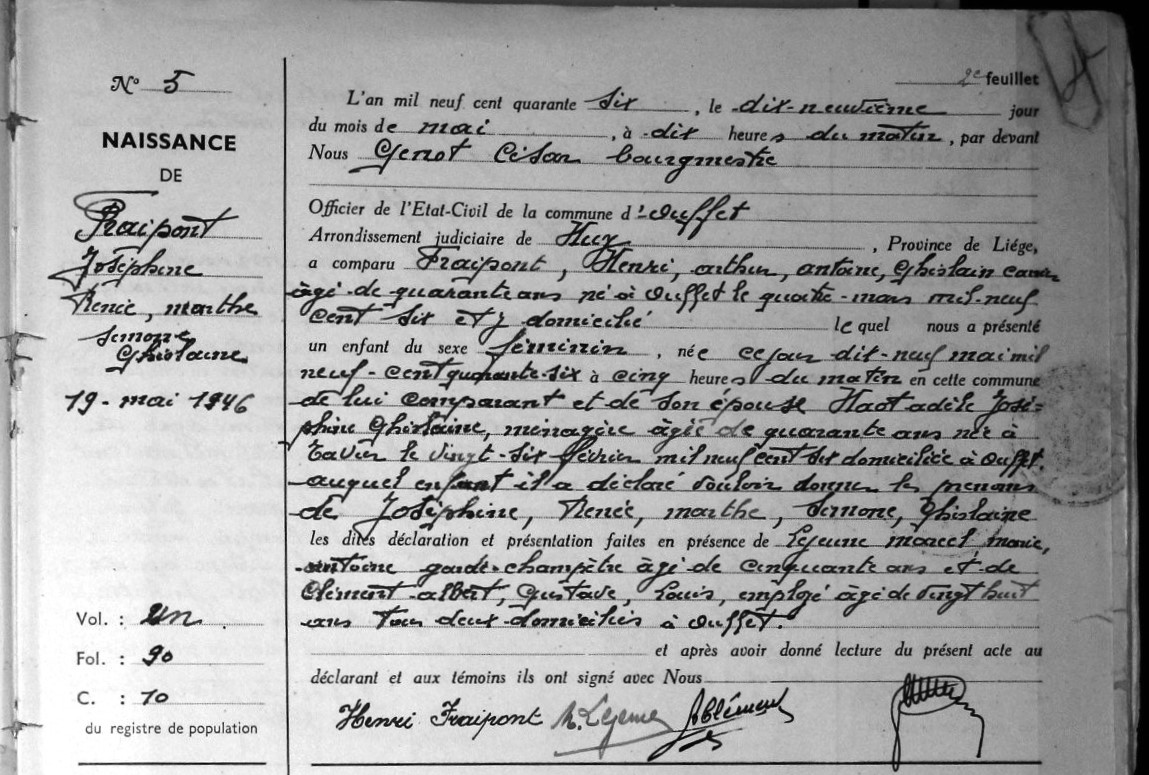 N° 5
NAISSANCE
DE
Fraipont
Joséphine
Renée, Marthe
Simone
Ghislaine
19 - mai 1946
Vol. : un
Fol. : 90
C. : 10
du registre de population
2e feuillet
L'an mil neuf cent quarante six, le dix-neuvième jour
du mois de mai, à dix heures du matin, par devant
Nous Genot César bourgmestre
Officier de l'Etat-Civil de la commune d'Ouffet
Arrondissement judiciaire de Huy, Province de Liége,
a comparu Fraipont, Henri, arthur, antoine, Ghislain
âgé de quarante ans né à Ouffet le quatre mars mil neuf
cent six et y domicilié lequel nous a présenté
un enfant du sexe féminin, née ce jour dix-neuf mai mil
neuf-cent quarante-six à cinq heures du matin en cette commune
de lui comparant et de son épouse Haot adèle José-
phine Ghislaine, ménagère âgée de quarante ans née à
Tavier le vingt-six février mil neuf cent six domiciliée à Ouffet.
auquel enfant il a déclaré vouloir donner les prénoms
de Joséphine, Renée, marthe, Simone, Ghislaine
les dites déclaration et présentation faites en présence de Lejeune marcel marie,
antoine garde-champêtre âgé de cinquante ans et de
Clément albert, Gustave, Louis, employé âgé de vingt huit
ans tous deux domiciliés à Ouffet.
et après avoir donné lecture du présent acte au
déclarant et aux témoins ils ont signé avec Nous
Henri Fraipont M. Lejeune A Clément